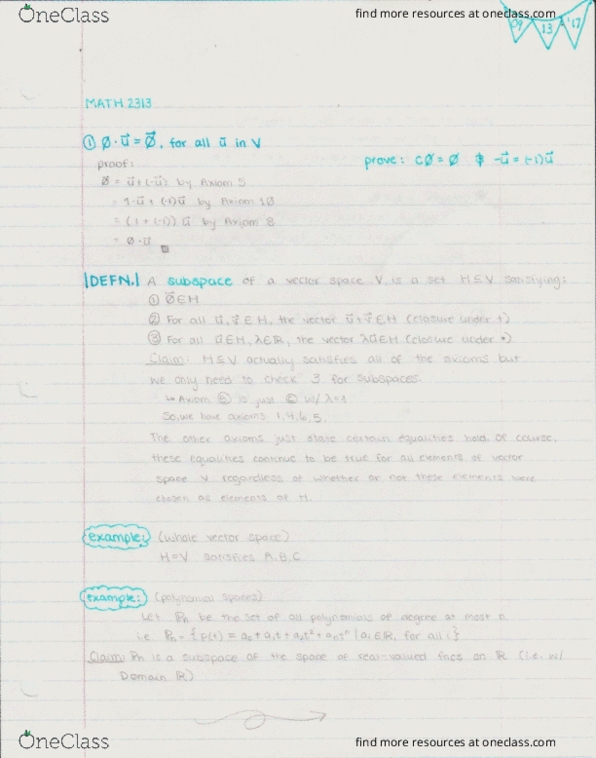 OneClass
find more resources at oneclass.com
09 13 '17
MATH 2313
① 0·u⃗ = 0⃗, for all u⃗ in V
prove: c0 = 0 & -u⃗ = (-1)u⃗
proof:
0⃗ = u⃗ + (-u⃗) by Axiom 5
= 1·u⃗ + (-1)u⃗ by Axiom 10
= (1 + (-1)) u⃗ by Axiom 8
= 0·u⃗
DEFN. A subspace of a vector space V, is a set H⊆V satisfying:
① 0⃗∈H
② For all u⃗,v⃗∈H, the vector u⃗+v⃗∈H (closure under +)
③ For all u⃗∈H, λ∈ℝ, the vector λu⃗∈H (closure under •)
Claim: H⊆V actually satisfies all of the axioms but
we only need to check 3 for subspaces.
↳ Axiom ⑤ is just w/ λ=-1
So, we have axioms 1,4,6,5.
The other axioms just state certain equalities hold. Of course,
these equalities continue to be true for all elements of vector
space V regardless of whether or not these elements were
chosen as elements of H.
example: (whole vector space)
H=V satisfies A,B,C
example: (polynomial spaces)
Let ℙn be the set of all polynomials of degree at most n.
i.e. ℙn = {p(t) = a₀+a₁t+a₂t²+aₙtⁿ | aᵢ∈ℝ, for all i}
Claim: ℙn is a subspace of the space of real-valued fncs on ℝ (i.e. w/
Domain ℝ)
OneClass
find more resources at oneclass.com